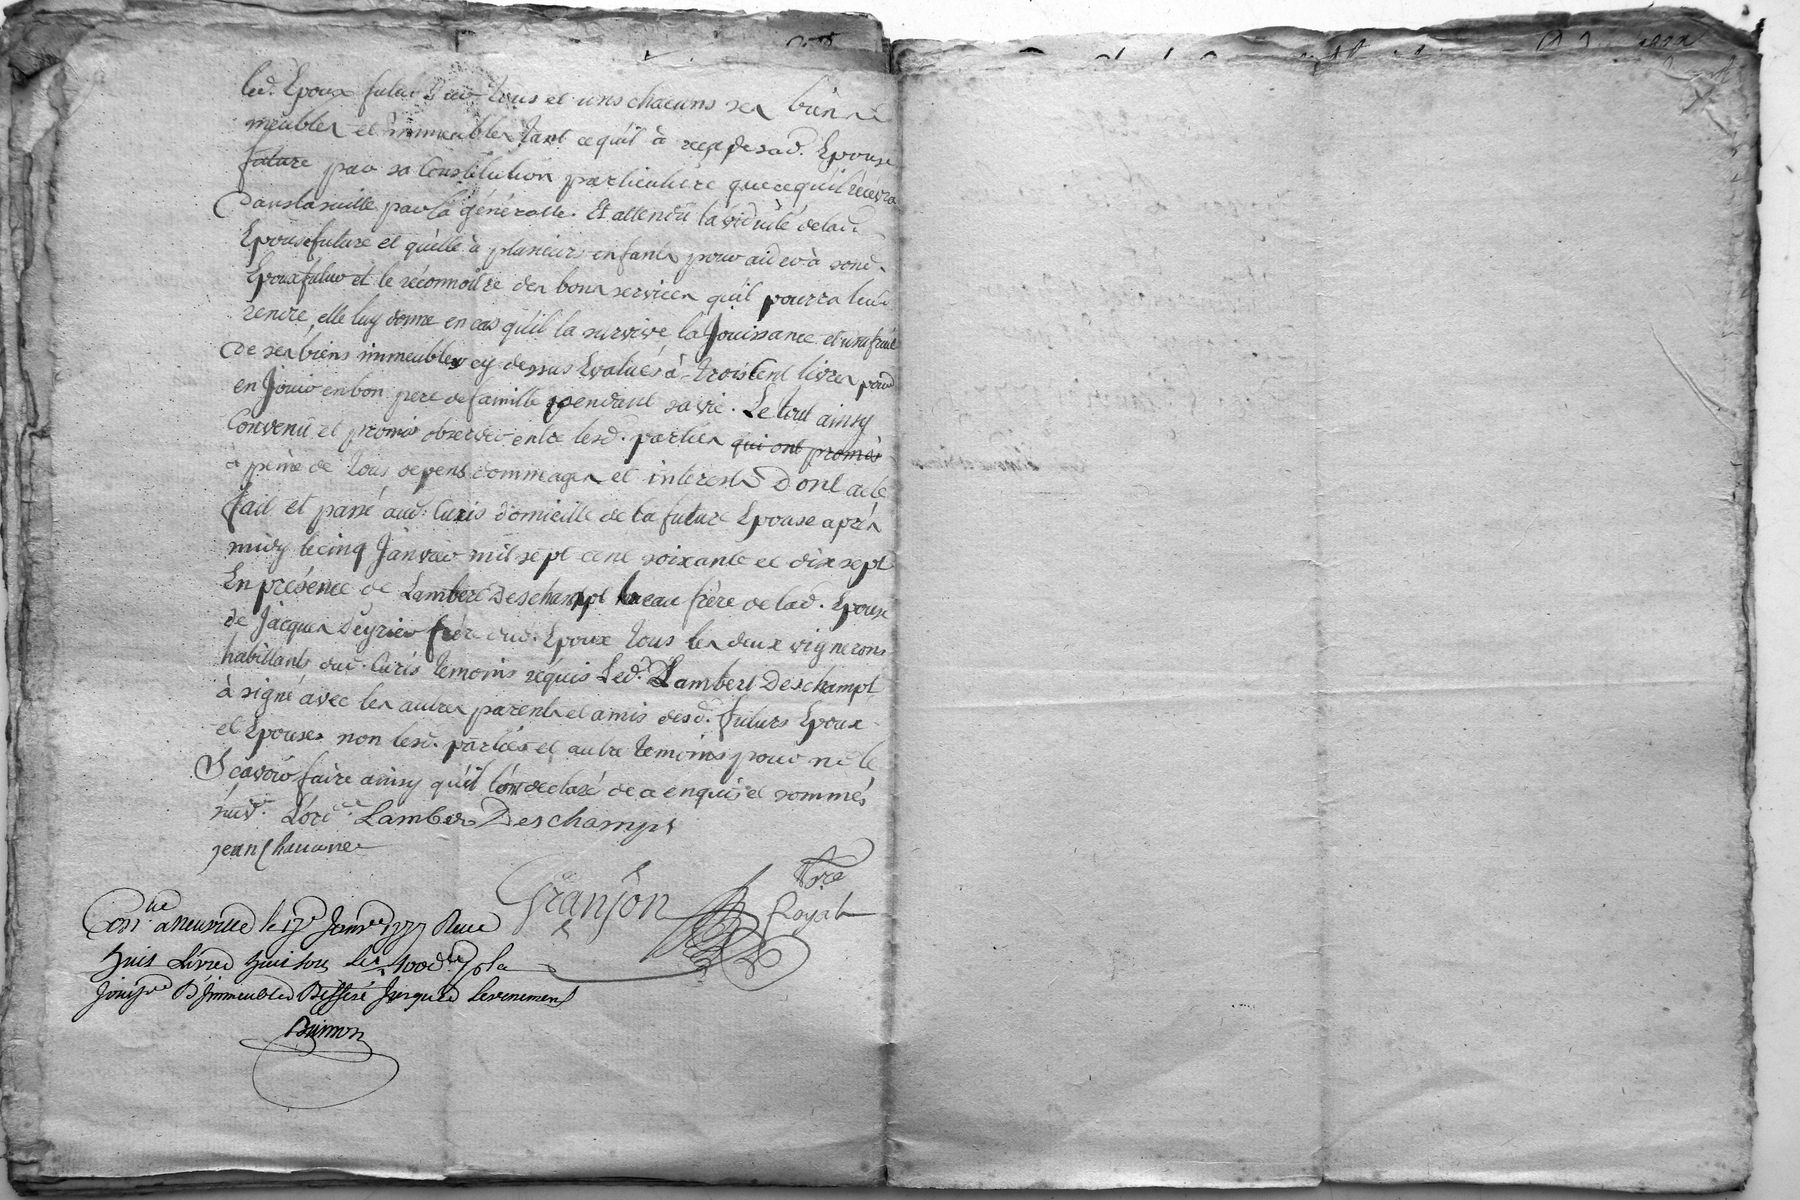 led. Epoux futur sur tous et uns chacuns ses biens
meubles et immeubles tant ce quil à reçu de sad. Epouse
future par sa Constitution particuliére que ce quil recevra
Dans la suitte par la généralle. Et attendu la viduité de lad.
Epouse future et quelle à plusieurs enfants pour aider à sond.
Epoux futur et le réconnoitre des bons services quil pourra leur
rendre elle luy donne en cas quil la survive la Jouissance et usufruit
de ses biens immeubles cy dessus Evalués à trois Cent livres pour
en Jouir en bon pere de famille pendant sa vie. Le tout ainsy
Convenû et promis observer entre lesd. parties qui ont promis
à peine de tous depens dommages et interests Dont acte
fait et passé aud. Curis domicille de la future Epouse aprés
midy le cinq Janvier mil sept cent soixante et dix sept
En présence de Lambert Deschampt beau frère de lad. Epouse
de Jacques Deyrieu frère dud. Epoux tous les deux vignerons
habittants dud. Curis temoins réquis Led. Lambert Deschampt
à signé avec les autres parents et amis desd. futurs Epoux
et Epouses non lesd. parties et autre temoins pour ne le
Scavoir faire ainsy quil l'ont declaré de ce enquis et sommés
Lamber Deschamps
jean Chavanne
Granjon
Nre
Royal
Con.lle a Neuville le 17e Janv.er 1777 Reçu
huit Livres huit sous
Jouis.ce D'Immeubles Differé Jusques Levenement